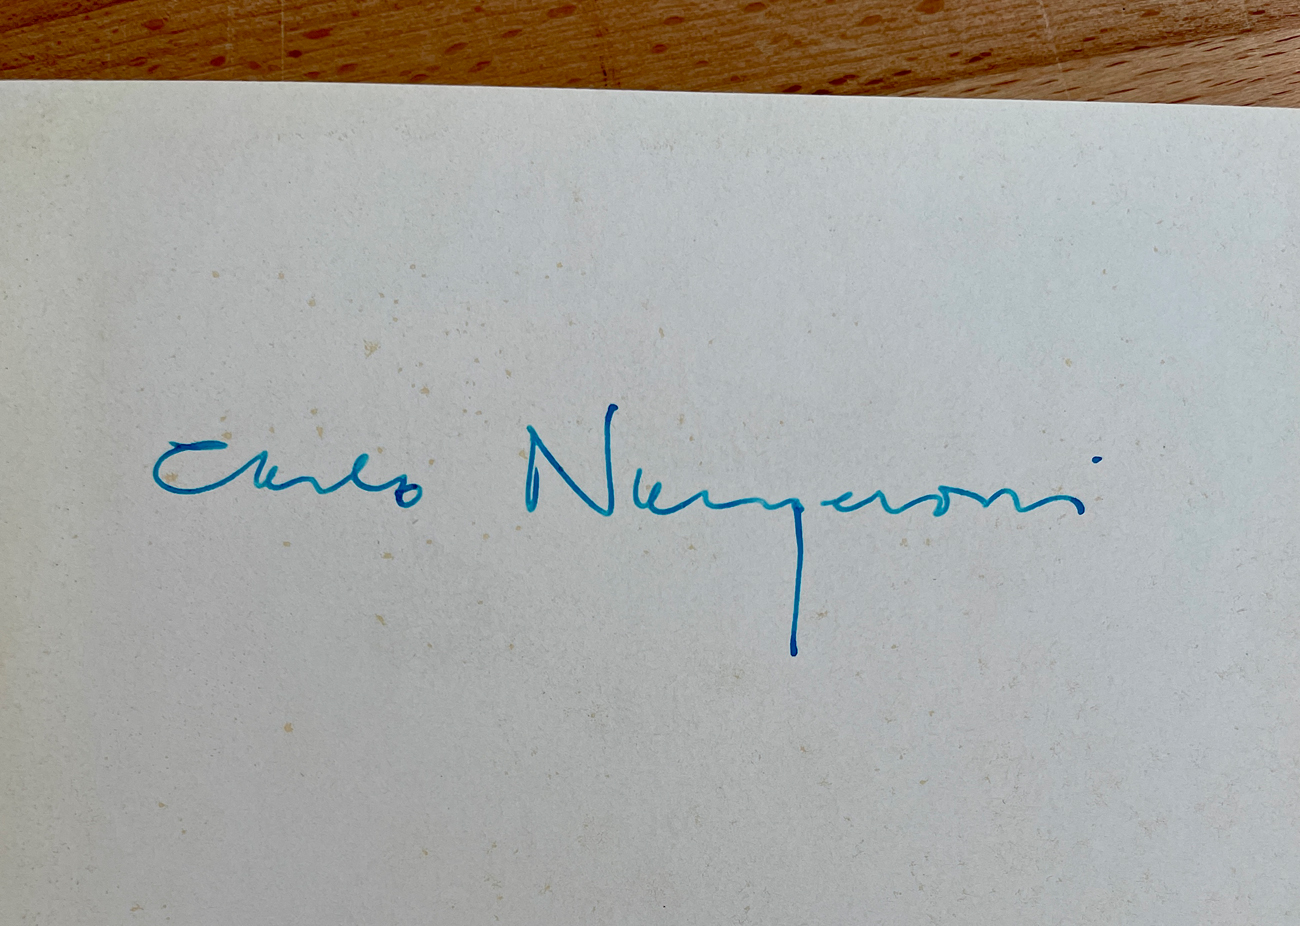 Carlo Nangeroni